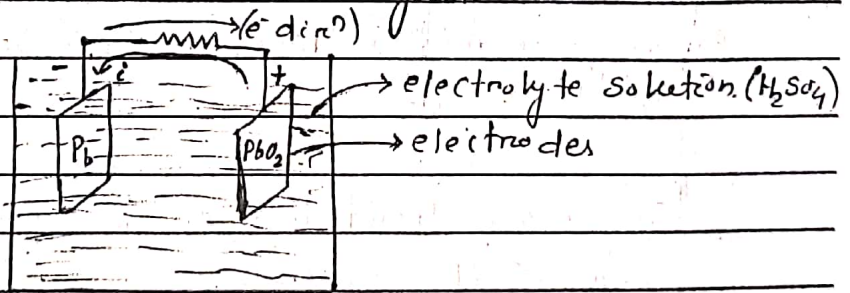 (e⁻ dirⁿ)
i
- +
electrolyte solution. (H₂SO₄)
Pb PbO₂ electrodes